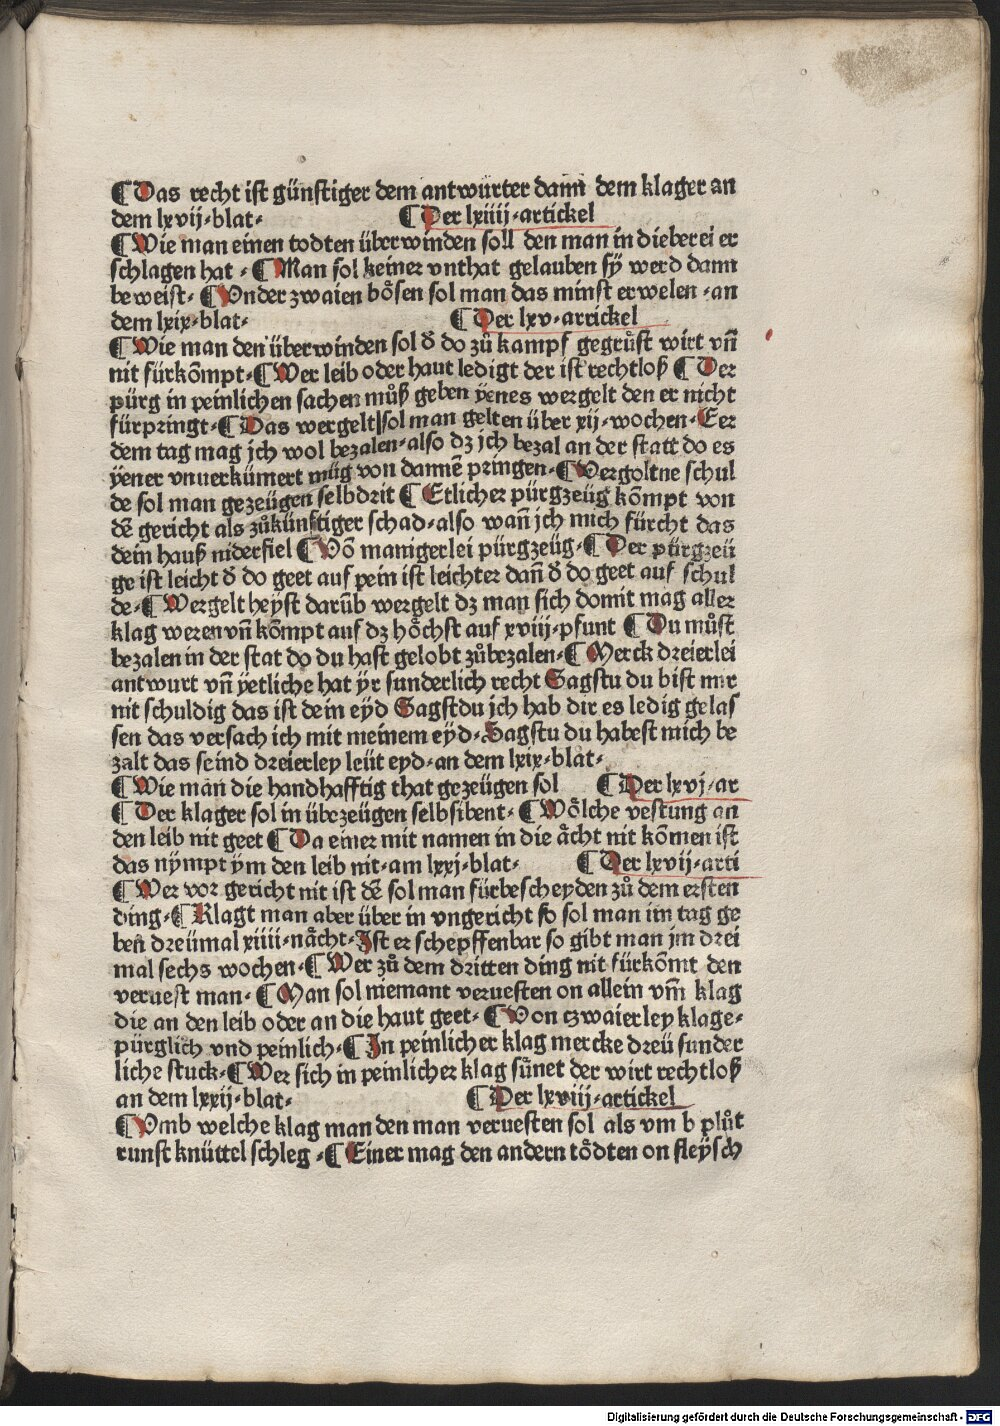 ¶Das recht ist günstiger dem antwurter dann dem klager an
dem lxvij·blat· ¶Der lxiiij·artickel
¶Wie man einen todten überwinden soll den man in dieberei er
schlagen hat·¶Man sol keiner vnthat gelauben sÿ werd dann
beweist·¶Vnder zwaien bo̊sen sol man das minst erwelen·an
dem lxix·blat· ¶Der lxv·artickel
¶Wie man den überwinden sol d̕ do zů kampf gegrůst wirt vñ
nit fürkõmpt·¶Wer leib oder haut ledigt der ist rechtloß ¶Der
pürg in peinlichen sachen můß geben ÿenes wergelt den er nicht
fürpringt·¶Das wergelt|sol man gelten über xij·wochen·Eer
dem tag mag jch wol bezalen·also dz jch bezal an der statt do es
ÿener vnuerkümert müg von dannẽ pringen·¶Vergoltne schul
de sol man gezeügen selbdrit ¶Etlicher pürgzeüg kõmpt von
dẽ gericht als zůkünftiger schad·also wañ jch mich fürcht das
dein hauß niderfiel ¶Võ manigerlei pürgzeüg·¶Der pürgzeü
ge ist leicht d̕ do geet auf pein ist leichter dañ d̕ do geet auf schul
de·¶Wergelt heyst darũb wergelt dz man sich domit mag aller
klag weren vñ kõmpt auf dz hȯchst auf xviij·pfunt ¶Du můst
bezalen in der stat do du hast gelobt zůbezalen·¶Merck dreierlei
antwurt vñ ÿetliche hat ÿr sunderlich recht Sagstu du bist mir
nit schuldig das ist dein eÿd Sagstdu jch hab dir es ledig gelas
sen das versach ich mit meinem eÿd·Sagstu du habest mich be
zalt das seind dreierley leüt eyd·an dem lxix·blat·
¶Wie man die handhafftig that gezeügen sol ¶Der lxvj·ar
¶Der klager sol in übezeügen selbsibent·¶Wȯlche vestung an
den leib nit geet ¶Da einer mit namen in die ȧcht nit kõmen ist
das nÿmpt ÿm den leib nit·am lxxj·blat· ¶Der lxvij·arti
¶Wer vor gericht nit ist dẽ sol man fürbescheyden zů dem ersten
ding·¶Klagt man aber über in vngericht so sol man im tag ge
beñ dreümal xiiii·nȧcht·Jst er schepffenbar so gibt man jm drei
mal sechs wochen·¶Wer zů dem dritten ding nit fürkõmt den
veruest man·¶Man sol niemant veruesten on allein vm̃ klag
die an den leib oder an die haut geet·¶Von czwaierley klage·
pürglich vnd peinlich·¶In peinlicher klag mercke dreü sunder
liche stuck·¶Wer sich in peinlicher klag sünet der wirt rechtloß
an dem lxxij·blat· ¶Der lxviij·artickel
¶Vmb welche klag man den man veruesten sol als vm b plůt
runst knüttel schleg·¶Einer mag den andern tȯdten on fleÿsch
Digitalisierung gefördert durch die Deutsche Forschungsgemeinschaft - DFG